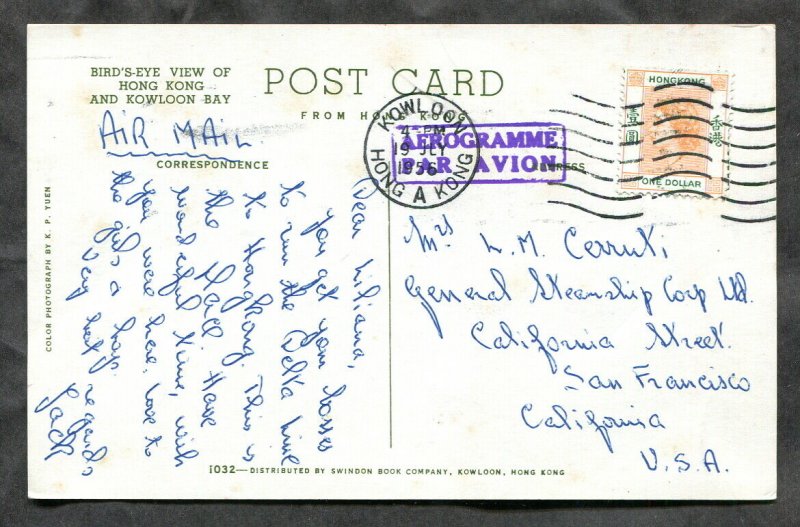 BIRD'S-EYE VIEW OF
HONG KONG
AND KOWLOON BAY
POST CARD
FROM HONG KONG
AIR MAIL
CORRESPONDENCE
ADDRESS
KOWLOON
4 - PM
19 JLY
1956
HONG A KONG
AEROGRAMME
PAR AVION
HONGKONG
壹圓
香港
ONE DOLLAR
Dear Liliana,
you get your bosses
to run the Delta Line
to Hongkong. This is
the place. Have
wonderful time, wish
you were here. Love to
the girls & boys.
Very best regards
Jack
Mrs L. M. Cerruti
General Steamship Corp Ltd.
California Street.
San Francisco
California
U.S.A.
COLOR PHOTOGRAPH BY K. P. YUEN
1032—DISTRIBUTED BY SWINDON BOOK COMPANY, KOWLOON, HONG KONG